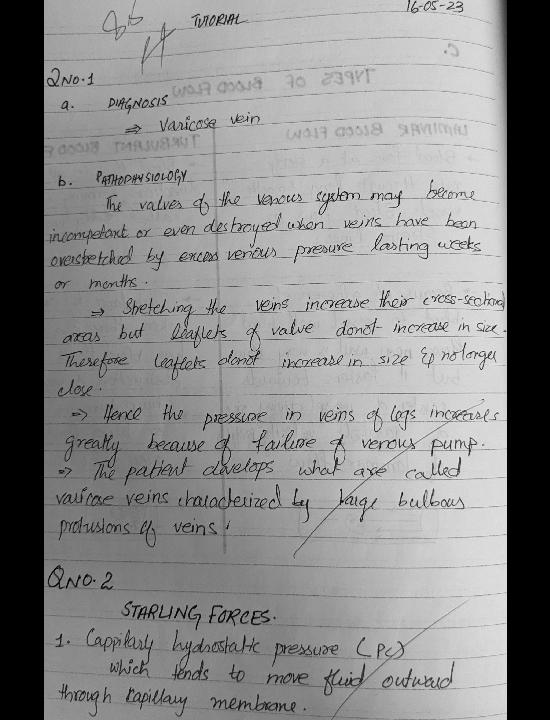 16-05-23
TUTORIAL
QNO.1
a. DIAGNOSIS
⇒ Varicose vein
b. PATHOPHYSIOLOGY
The valves of the venous system may become
incompetant or even destroyed when veins have been
overstretched by excess venous presure lasting weeks
or months.
⇒ Stretching the veins increase their cross-sectional
areas but leaflets of valve donot increase in size.
Therefore leaflets donot increase in size & no longer
close.
⇒ Hence the pressure in veins of legs increases
greatly because of failure of venous pump.
⇒ The patient develops what are called
varicose veins characterized by large bulbous
protusions of veins.
QNO.2
STARLING FORCES.
1. Cappilary hydrostatic pressure (Pc)
which tends to move fluid outward
through capillary membrane.